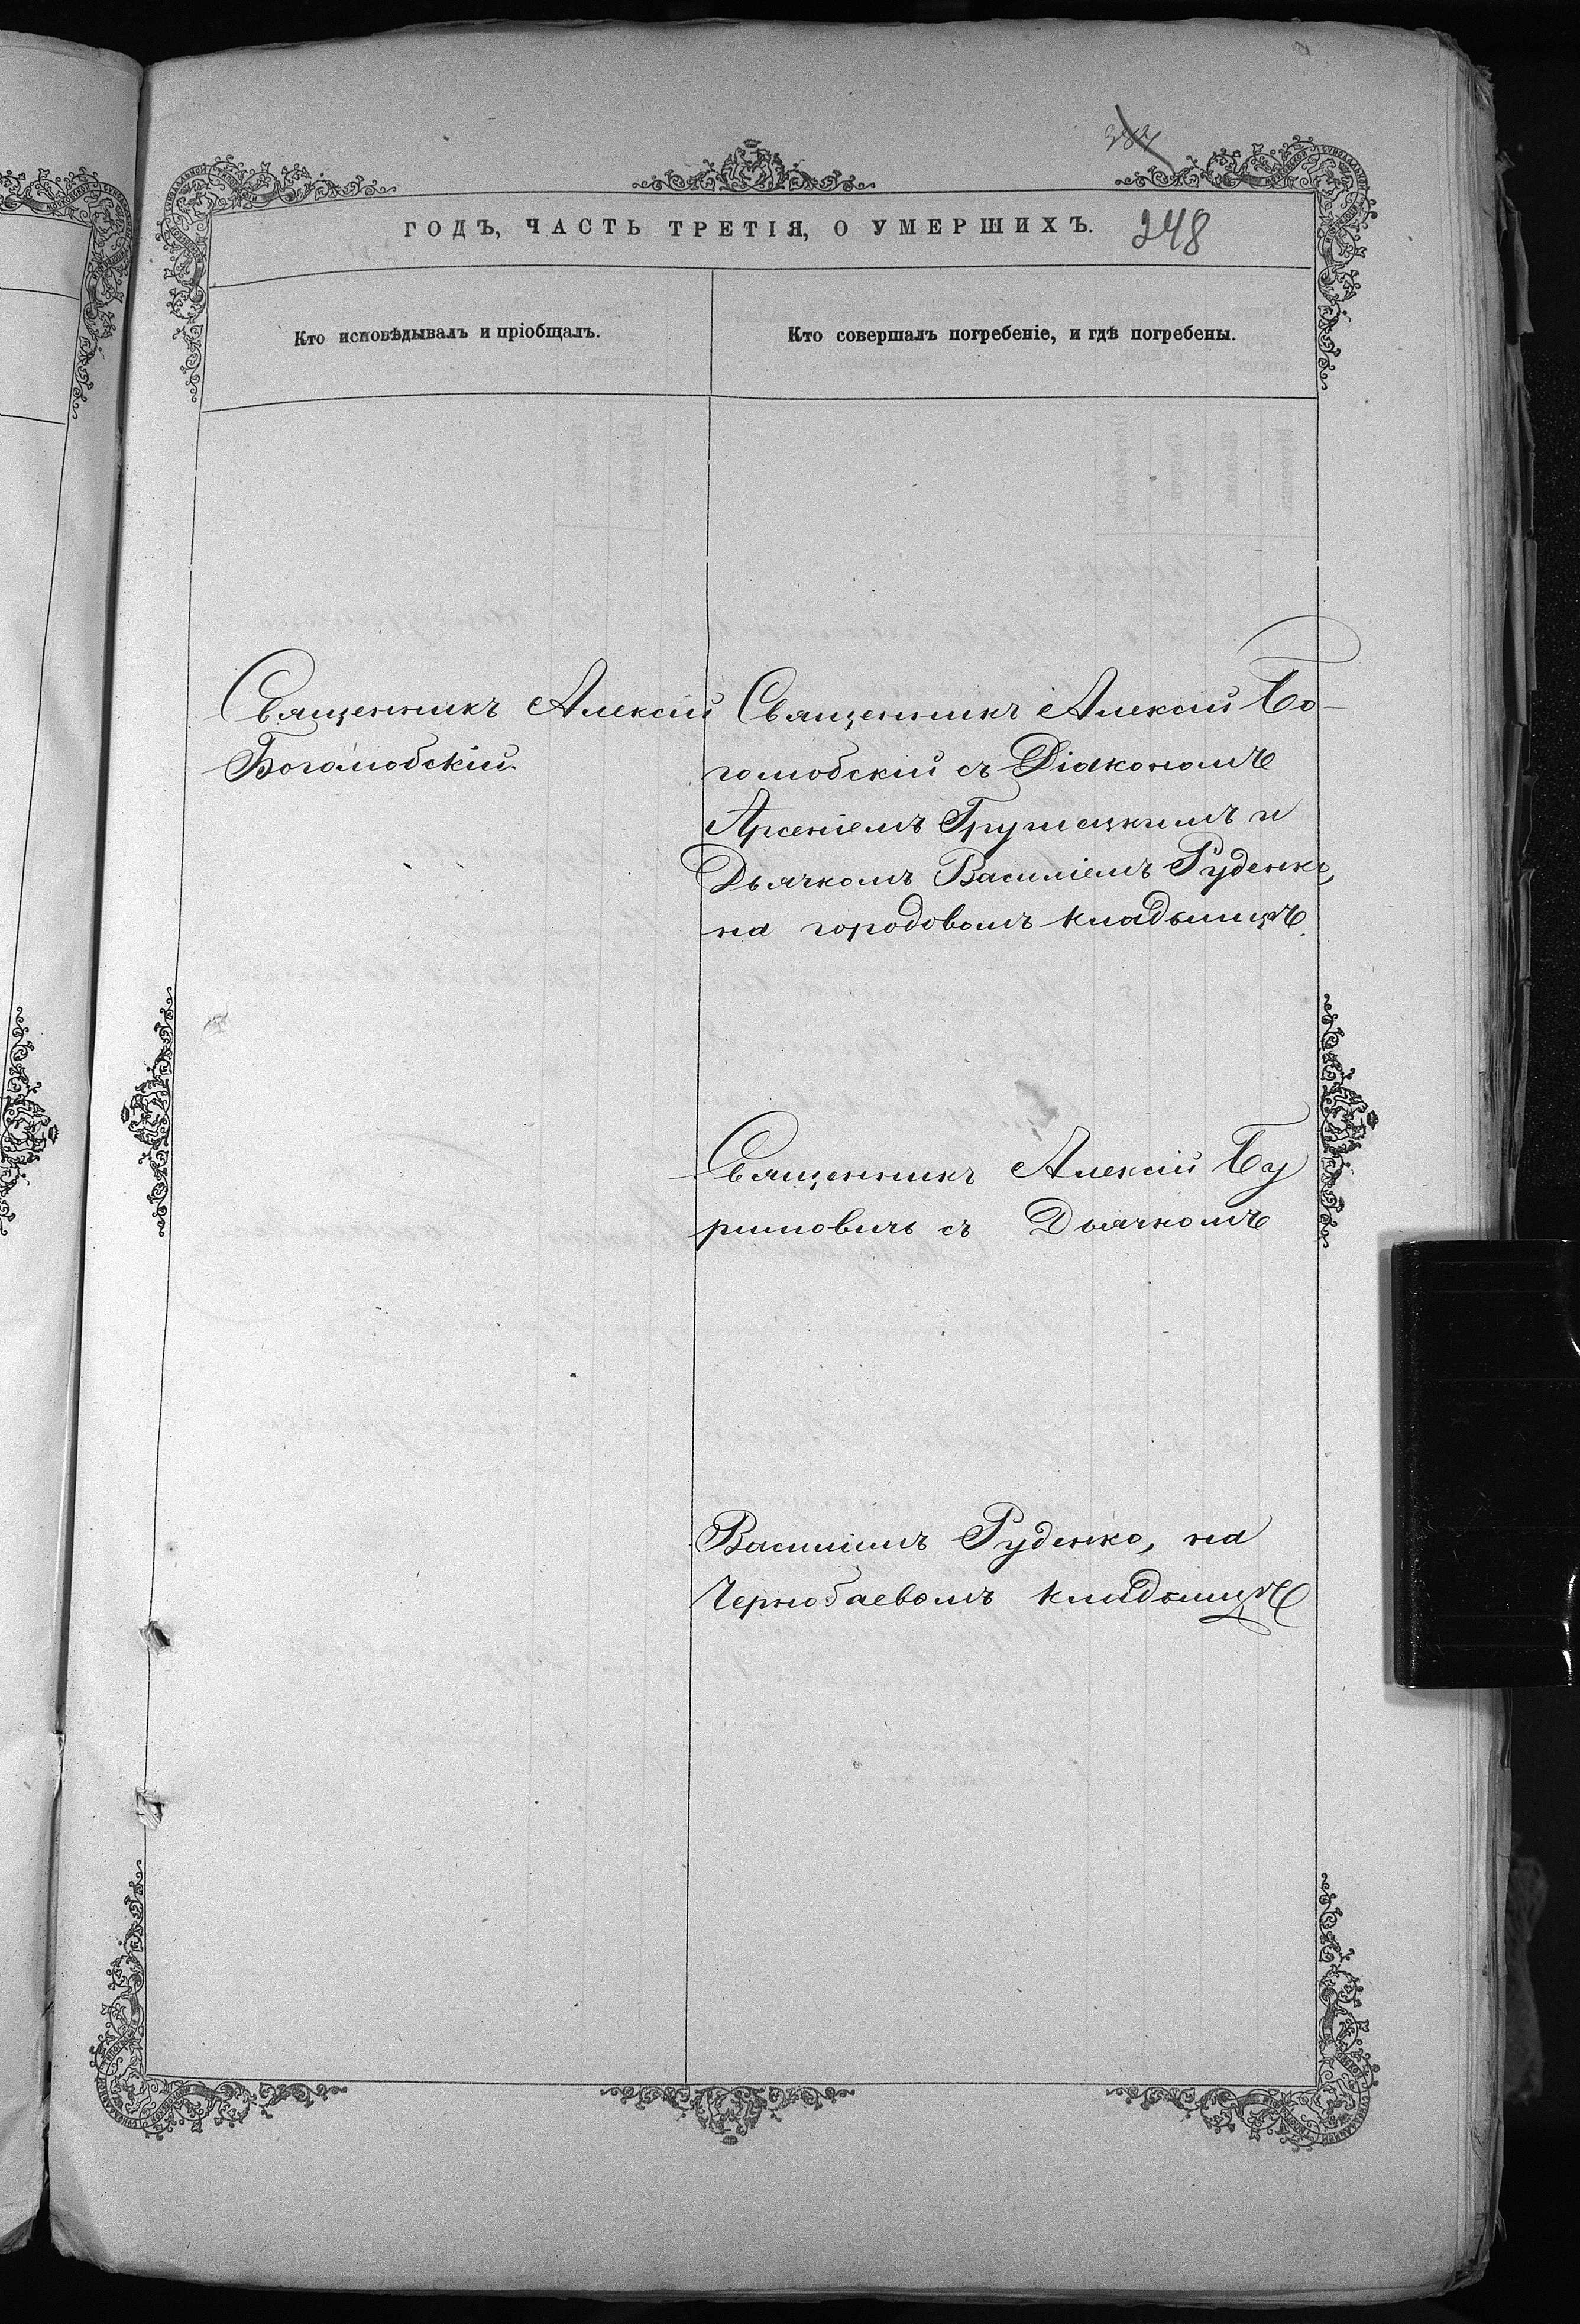 384
ГОДЪ, ЧАСТЬ ТРЕТІЯ, О УМЕРШИХЪ. 248
Кто исповѣдывалъ и пріобщалъ.
Кто совершалъ погребеніе, и гдѣ погребены.
Священникъ Алексій
Боголюбскій.
Священникъ Алексій Бо-
голюбскій съ Діакономъ
Арсеніемъ Грушецкимъ и
Дьячкомъ Василіемъ Руденко,
на городовомъ кладбищѣ.
Священникъ Алексій Бу
римовичъ съ Дьячкомъ
Василіемъ Руденко, на
Чернобаевомъ кладбищѣ